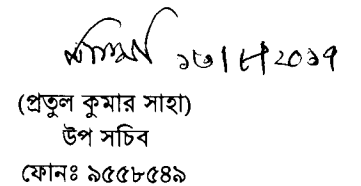 ১৩/৮/২০১৭
(প্রতুল কুমার সাহা)
উপ সচিব
ফোনঃ ৯৫৫৮৫৪৯